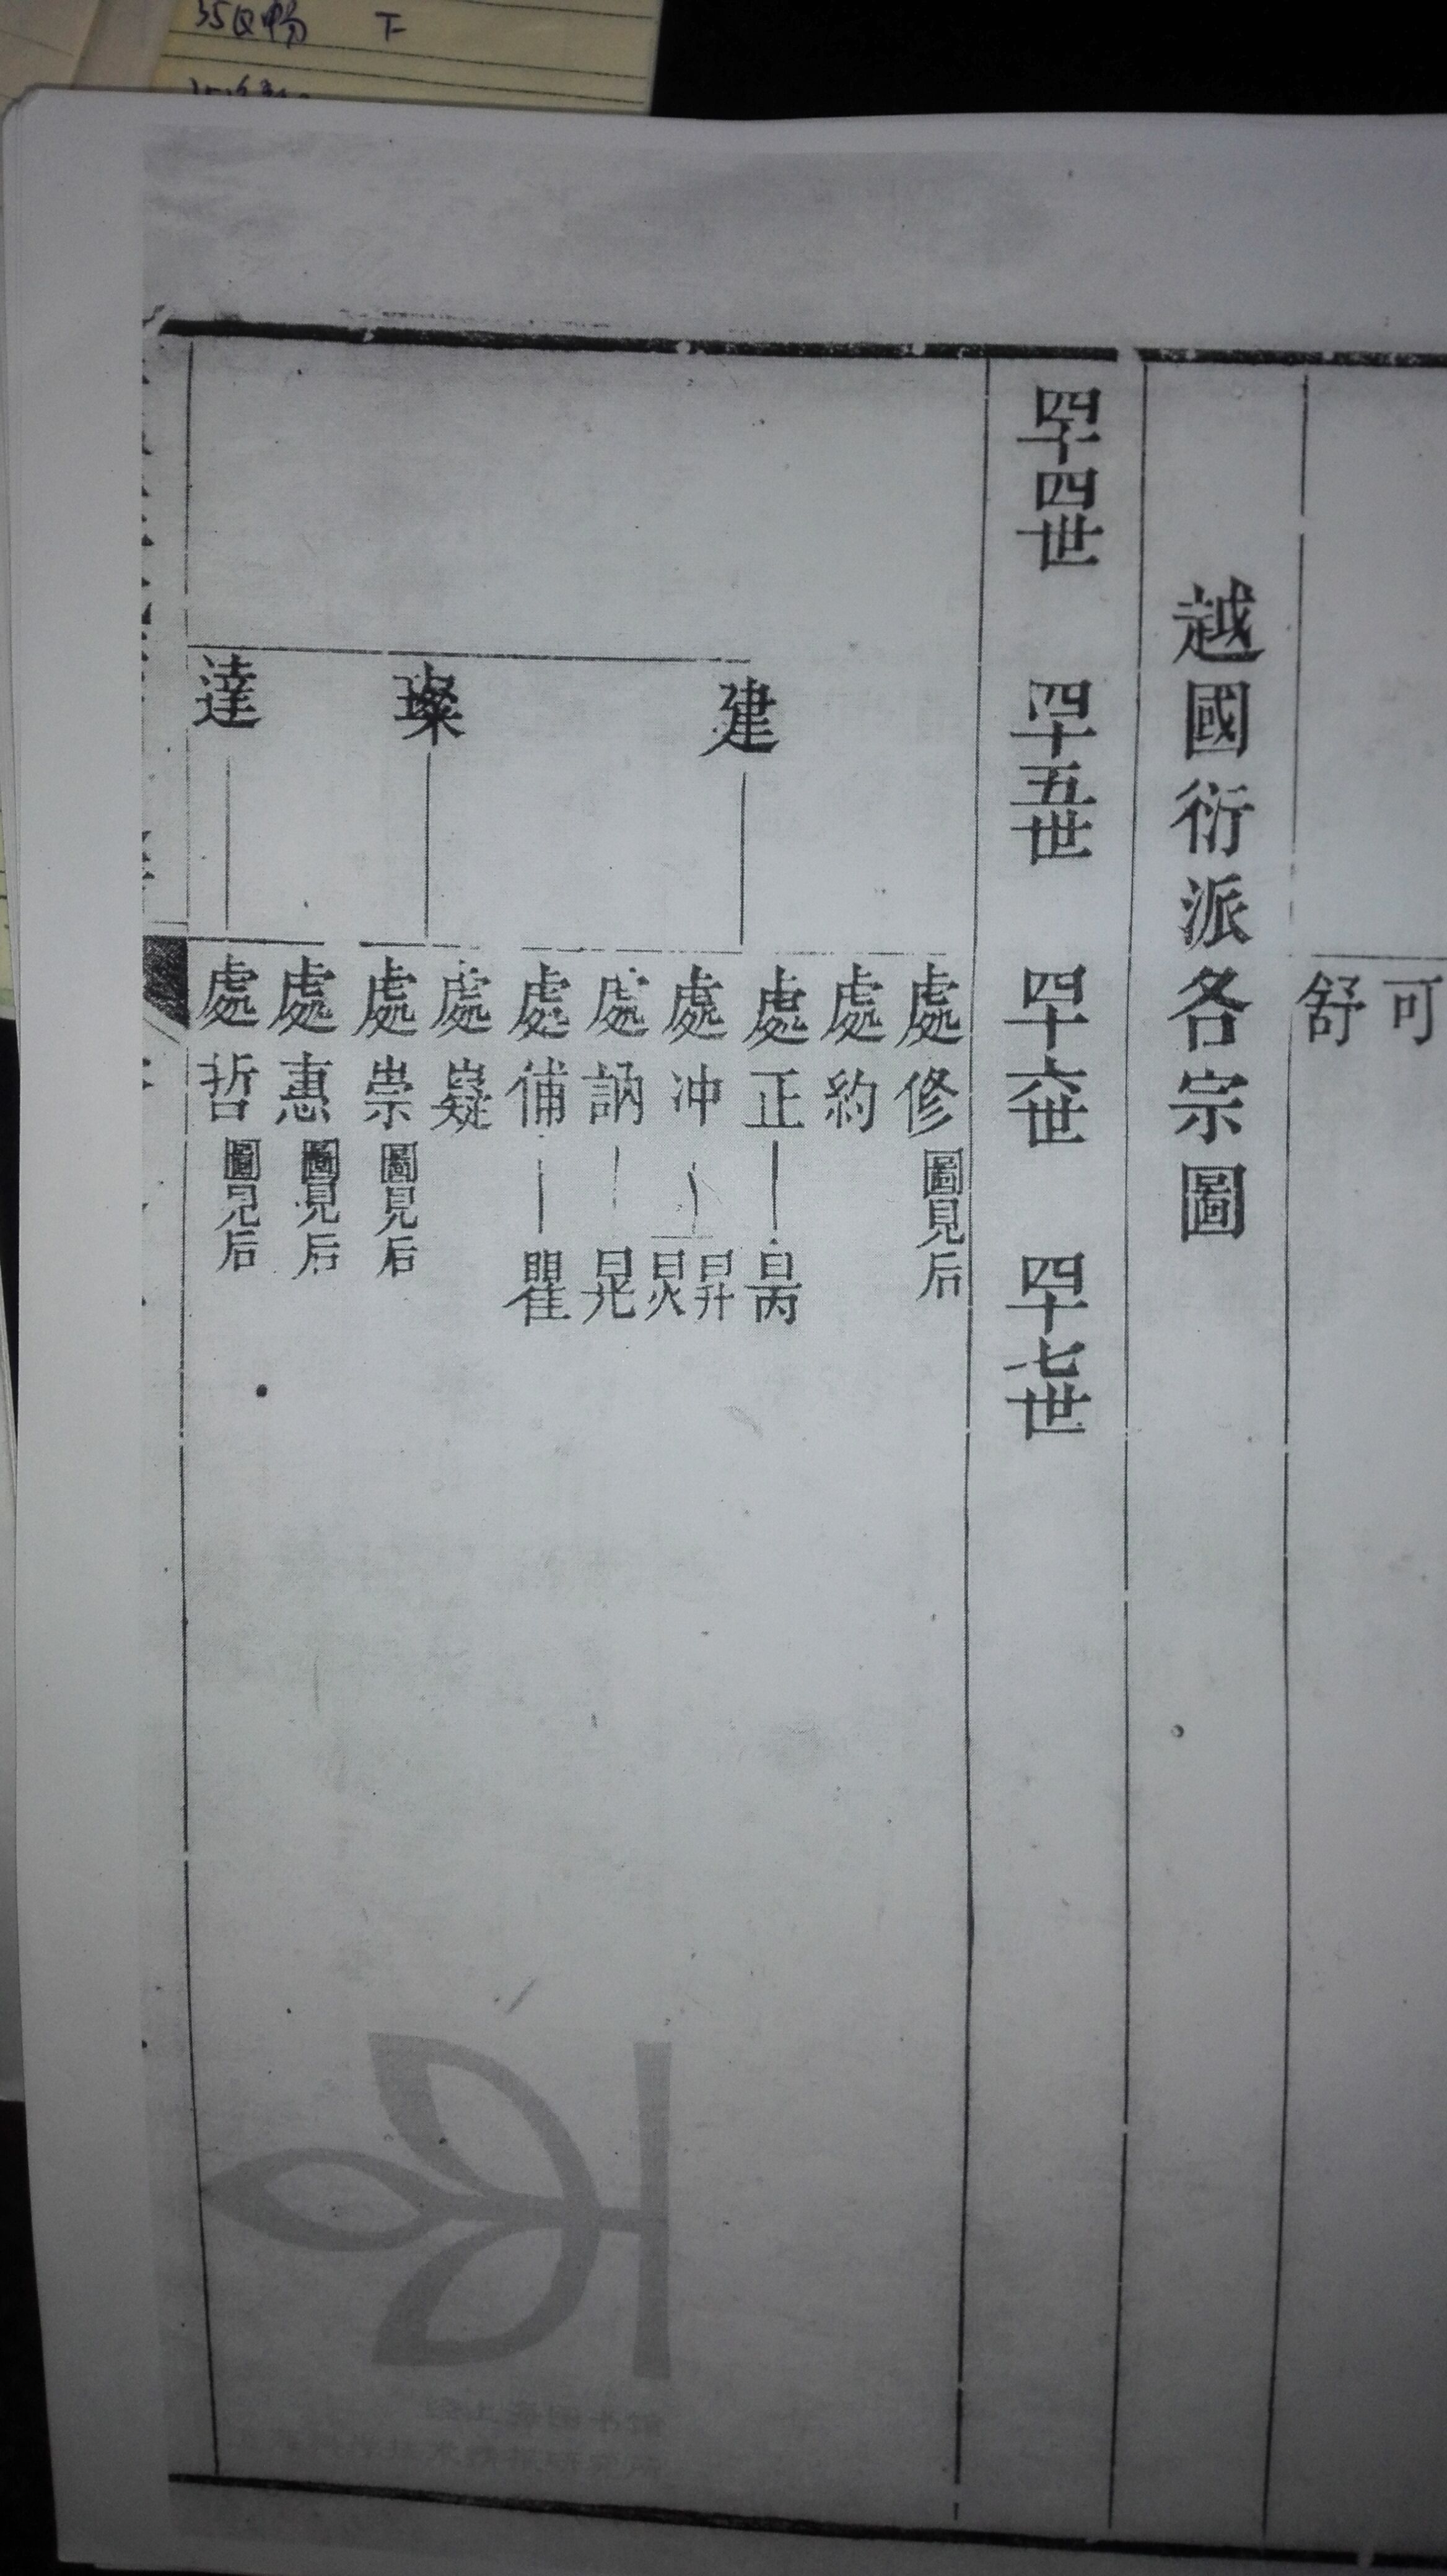 可
舒
越國衍派各宗圖
四十四世 四十五世 四十六世 四十七世
建
璨
達
處修 圖見后
處約
處正 昺
處冲 昇 炅
處訥 晃
處備 瞿
處嶷
處崇 圖見后
處惠 圖見后
處哲 圖見后